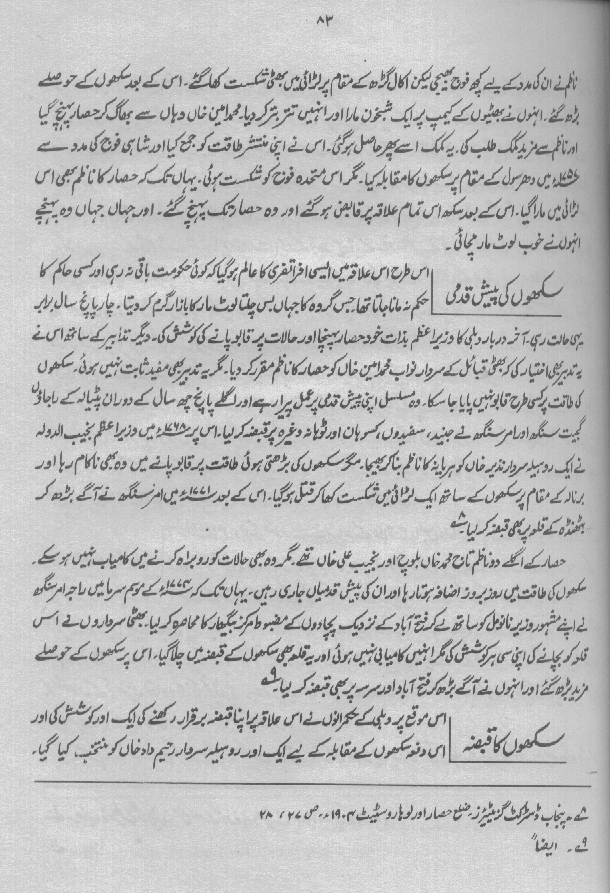 ۸۳
ناظم نے ان کی مدد کے لیے کچھ فوج بھیجی لیکن اکال گڑھ کے مقام پر لڑائی میں بھٹی شکست کھا گئے۔ اس کے بعد سکھوں کے حوصلے
بڑھ گئے۔ انہوں نے بھٹیوں کے کیمپ پر ایک شبخون مارا اور انہیں تتر بتر کر دیا۔ محمد امین خاں وہاں سے بھاگ کر حصار پہنچ گیا
اور ناظم سے مزید کمک طلب کی۔ یہ کمک اسے پھر حاصل ہو گئی۔ اس نے اپنی منتشر طاقت کو جمع کیا اور شاہی فوج کی مدد سے
میں دھرسول کے مقام پر سکھوں کا مقابلہ کیا۔ مگر اس متحدہ فوج کو شکست ہوئی۔ یہاں تک کہ حصار کا ناظم بھی اس
لڑائی میں مارا گیا۔ اس کے بعد سکھ اس تمام علاقہ پر قابض ہو گئے اور وہ حصار تک پہنچ گئے۔ اور جہاں جہاں وہ پہنچے
انہوں نے خوب لوٹ مار مچائی۔
سکھوں کی پیش قدمی
اس طرح اس علاقہ میں ایسی افراتفری کا عالم ہو گیا کہ کوئی حکومت باقی نہ رہی اور کسی حاکم کا
حکم نہ مانا جاتا تھا جس گروہ کا جہاں بس چلتا لوٹ مار کا بازار گرم کر دیتا۔ چار پانچ سال برابر
یہی حالت رہی۔ آخر دربار دہلی کا وزیر اعظم بذات خود حصار پہنچا اور حالات پر قابو پانے کی کوشش کی۔ دیگر تدابیر کے ساتھ اس نے
یہ تدبیر بھی اختیار کی کہ بھٹی قبائل کے سردار نواب محمد امین خاں کو حصار کا ناظم مقرر کر دیا۔ مگر یہ تدبیر بھی مفید ثابت نہیں ہوئی۔ سکھوں
کی طاقت پر کسی طرح قابو نہیں پایا جا سکا۔ وہ مسلسل اپنی پیش قدمی پر عمل پیرا رہے اور اگلے پانچ چھ سال کے دوران پٹیالہ کے راجاؤں
گجپت سنگھ اور امر سنگھ نے جیند، سفیدوں، کسوہان اور ٹوہانہ وغیرہ پر قبضہ کر لیا۔ اس پر ۱۷۶۸ء میں وزیر اعظم نجیب الدولہ
نے ایک روہیلہ سردار نذیر خاں کو ہریانہ کا ناظم بنا کر بھیجا۔ مگر سکھوں کی بڑھتی ہوئی طاقت پر قابو پانے میں وہ بھی ناکام رہا اور
برنالہ کے مقام پر سکھوں کے ساتھ ایک لڑائی میں شکست کھا کر قتل ہو گیا۔ اس کے بعد ۱۷۷۱ء میں امر سنگھ نے آگے بڑھ کر
بٹھنڈہ کے قلعہ پر بھی قبضہ کر لیا۔۸؎
حصار کے اگلے دو ناظم تاج محمد خاں بلوچ اور نجیب علی خاں تھے۔ مگر وہ بھی حالات کو روبراہ کرنے میں کامیاب نہیں ہو سکے۔
سکھوں کی طاقت میں روز بروز اضافہ ہوتا رہا اور ان کی پیش قدمیاں جاری رہیں۔ یہاں تک کہ ۱۷۷۴ء کے موسم سرما میں راجہ امر سنگھ
نے اپنے مشہور وزیر نانومل کو ساتھ لے کر فتح آباد کے نزدیک پچادوں کے مضبوط مرکز بیگھار کا محاصرہ کر لیا۔ بھٹی سرداروں نے اس
قلعہ کو بچانے کی اپنی سی ہر کوشش کی مگر انہیں کامیابی نہیں ہوئی اور یہ قلعہ بھی سکھوں کے قبضہ میں چلا گیا۔ اس پر سکھوں کے حوصلے
مزید بڑھ گئے اور انہوں نے آگے بڑھ کر فتح آباد اور سرسہ پر بھی قبضہ کر لیا۔۹؎
سکھوں کا قبضہ
اس موقع پر دہلی کے حکمرانوں نے اس علاقہ پر اپنا قبضہ برقرار رکھنے کی ایک اور کوشش کی اور
اس دفعہ سکھوں کے مقابلہ کے لیے ایک اور روہیلہ سردار رحیم داد خاں کو منتخب کیا گیا۔
۸؎۔ پنجاب ڈسٹرکٹ گزیٹیئرز۔ ضلع حصار اور لوہارو سٹیٹ ۱۹۰۴ء۔ ص ۲۷، ۲۸
۹؎۔ ایضاً